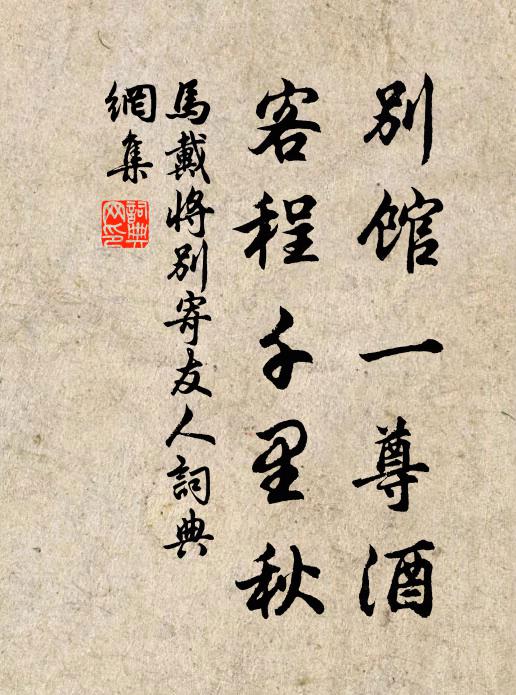 別館一尊酒
客程千里秋
馬戴將別寄友人詞典
網集
詞典網印